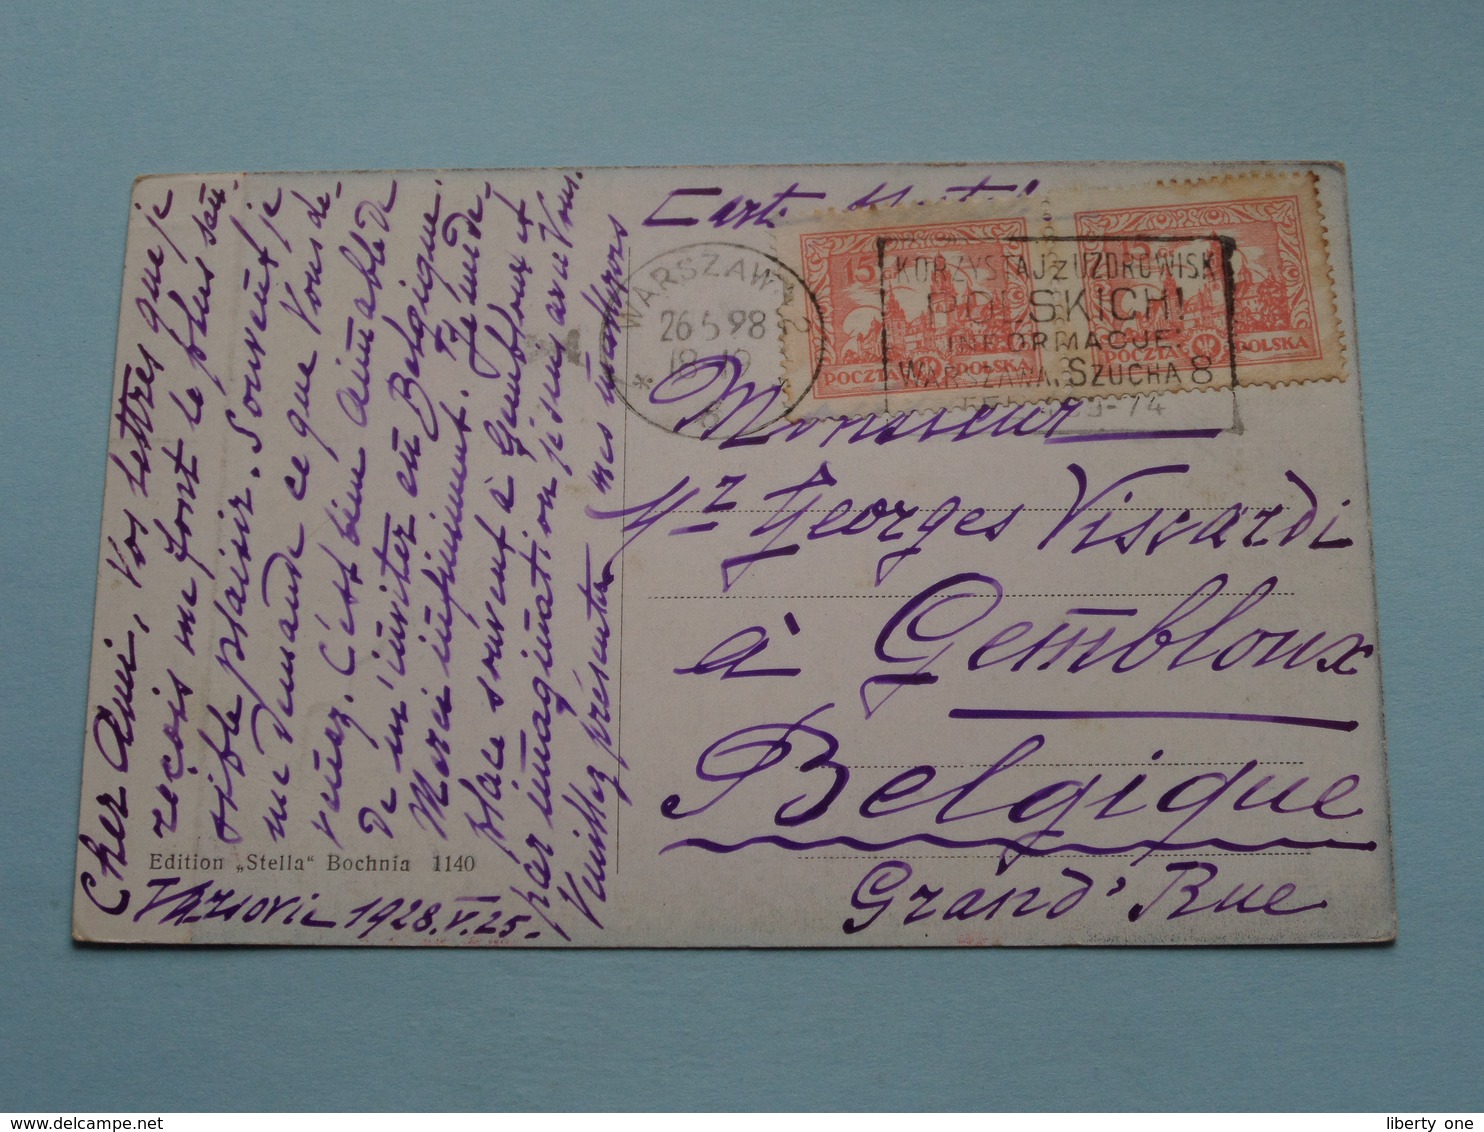 Cher Ami, Vos lettres que je
reçois me font le plus sen-
sible plaisir. Souvent je
me demande ce que Vous de-
venez. C'est bien aimable
de m'inviter en Belgique.
Merci infiniment. Je me
place souvent à Gembloux et
par imagination j'y suis avec Vous.
Veuillez présenter mes
Varsovie 1928.V.25.
Edition „Stella“ Bochnia 1140
Carte
WARSZAWA 2
26 5 28
18-19
KORZYSTAJ z UZDROWISK
POLSKICH!
INFORMACJE
WARSZAWA, SZUCHA 8
15
POCZTA POLSKA
15
POCZTA POLSKA
Monsieur
Mr Georges Viscardi
à Gembloux
Belgique
Grand' Rue
liberty one